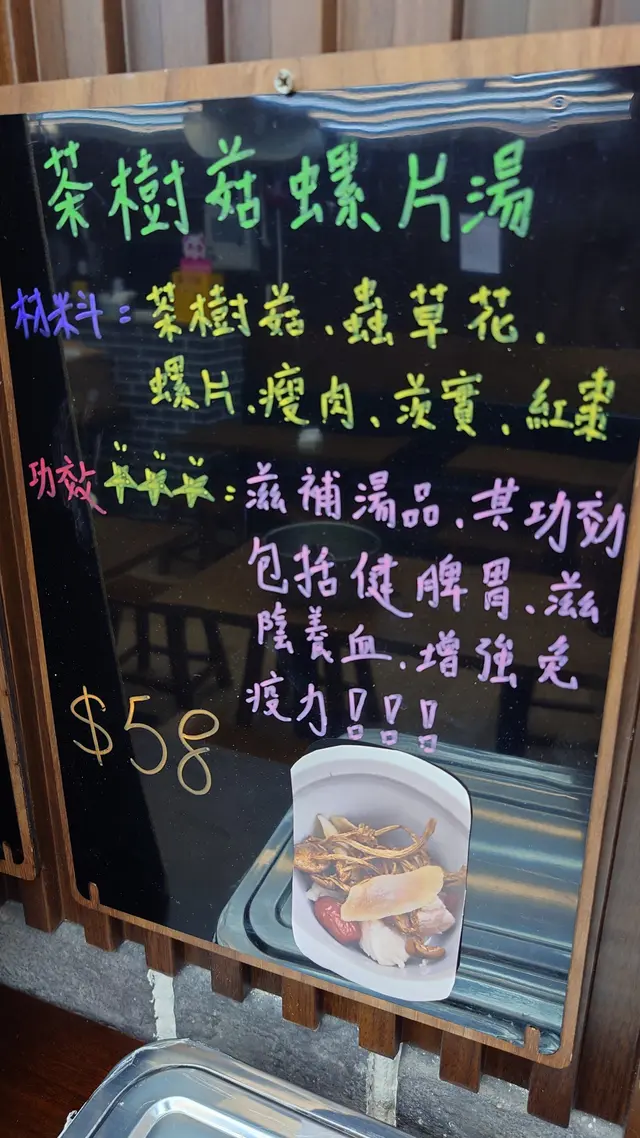 茶樹菇螺片湯
材料:茶樹菇、蟲草花、
螺片、瘦肉、茨實、紅棗
功效☆☆☆:滋補湯品、其功効
包括健脾胃、滋
陰養血、增強免
疫力!!!
$58